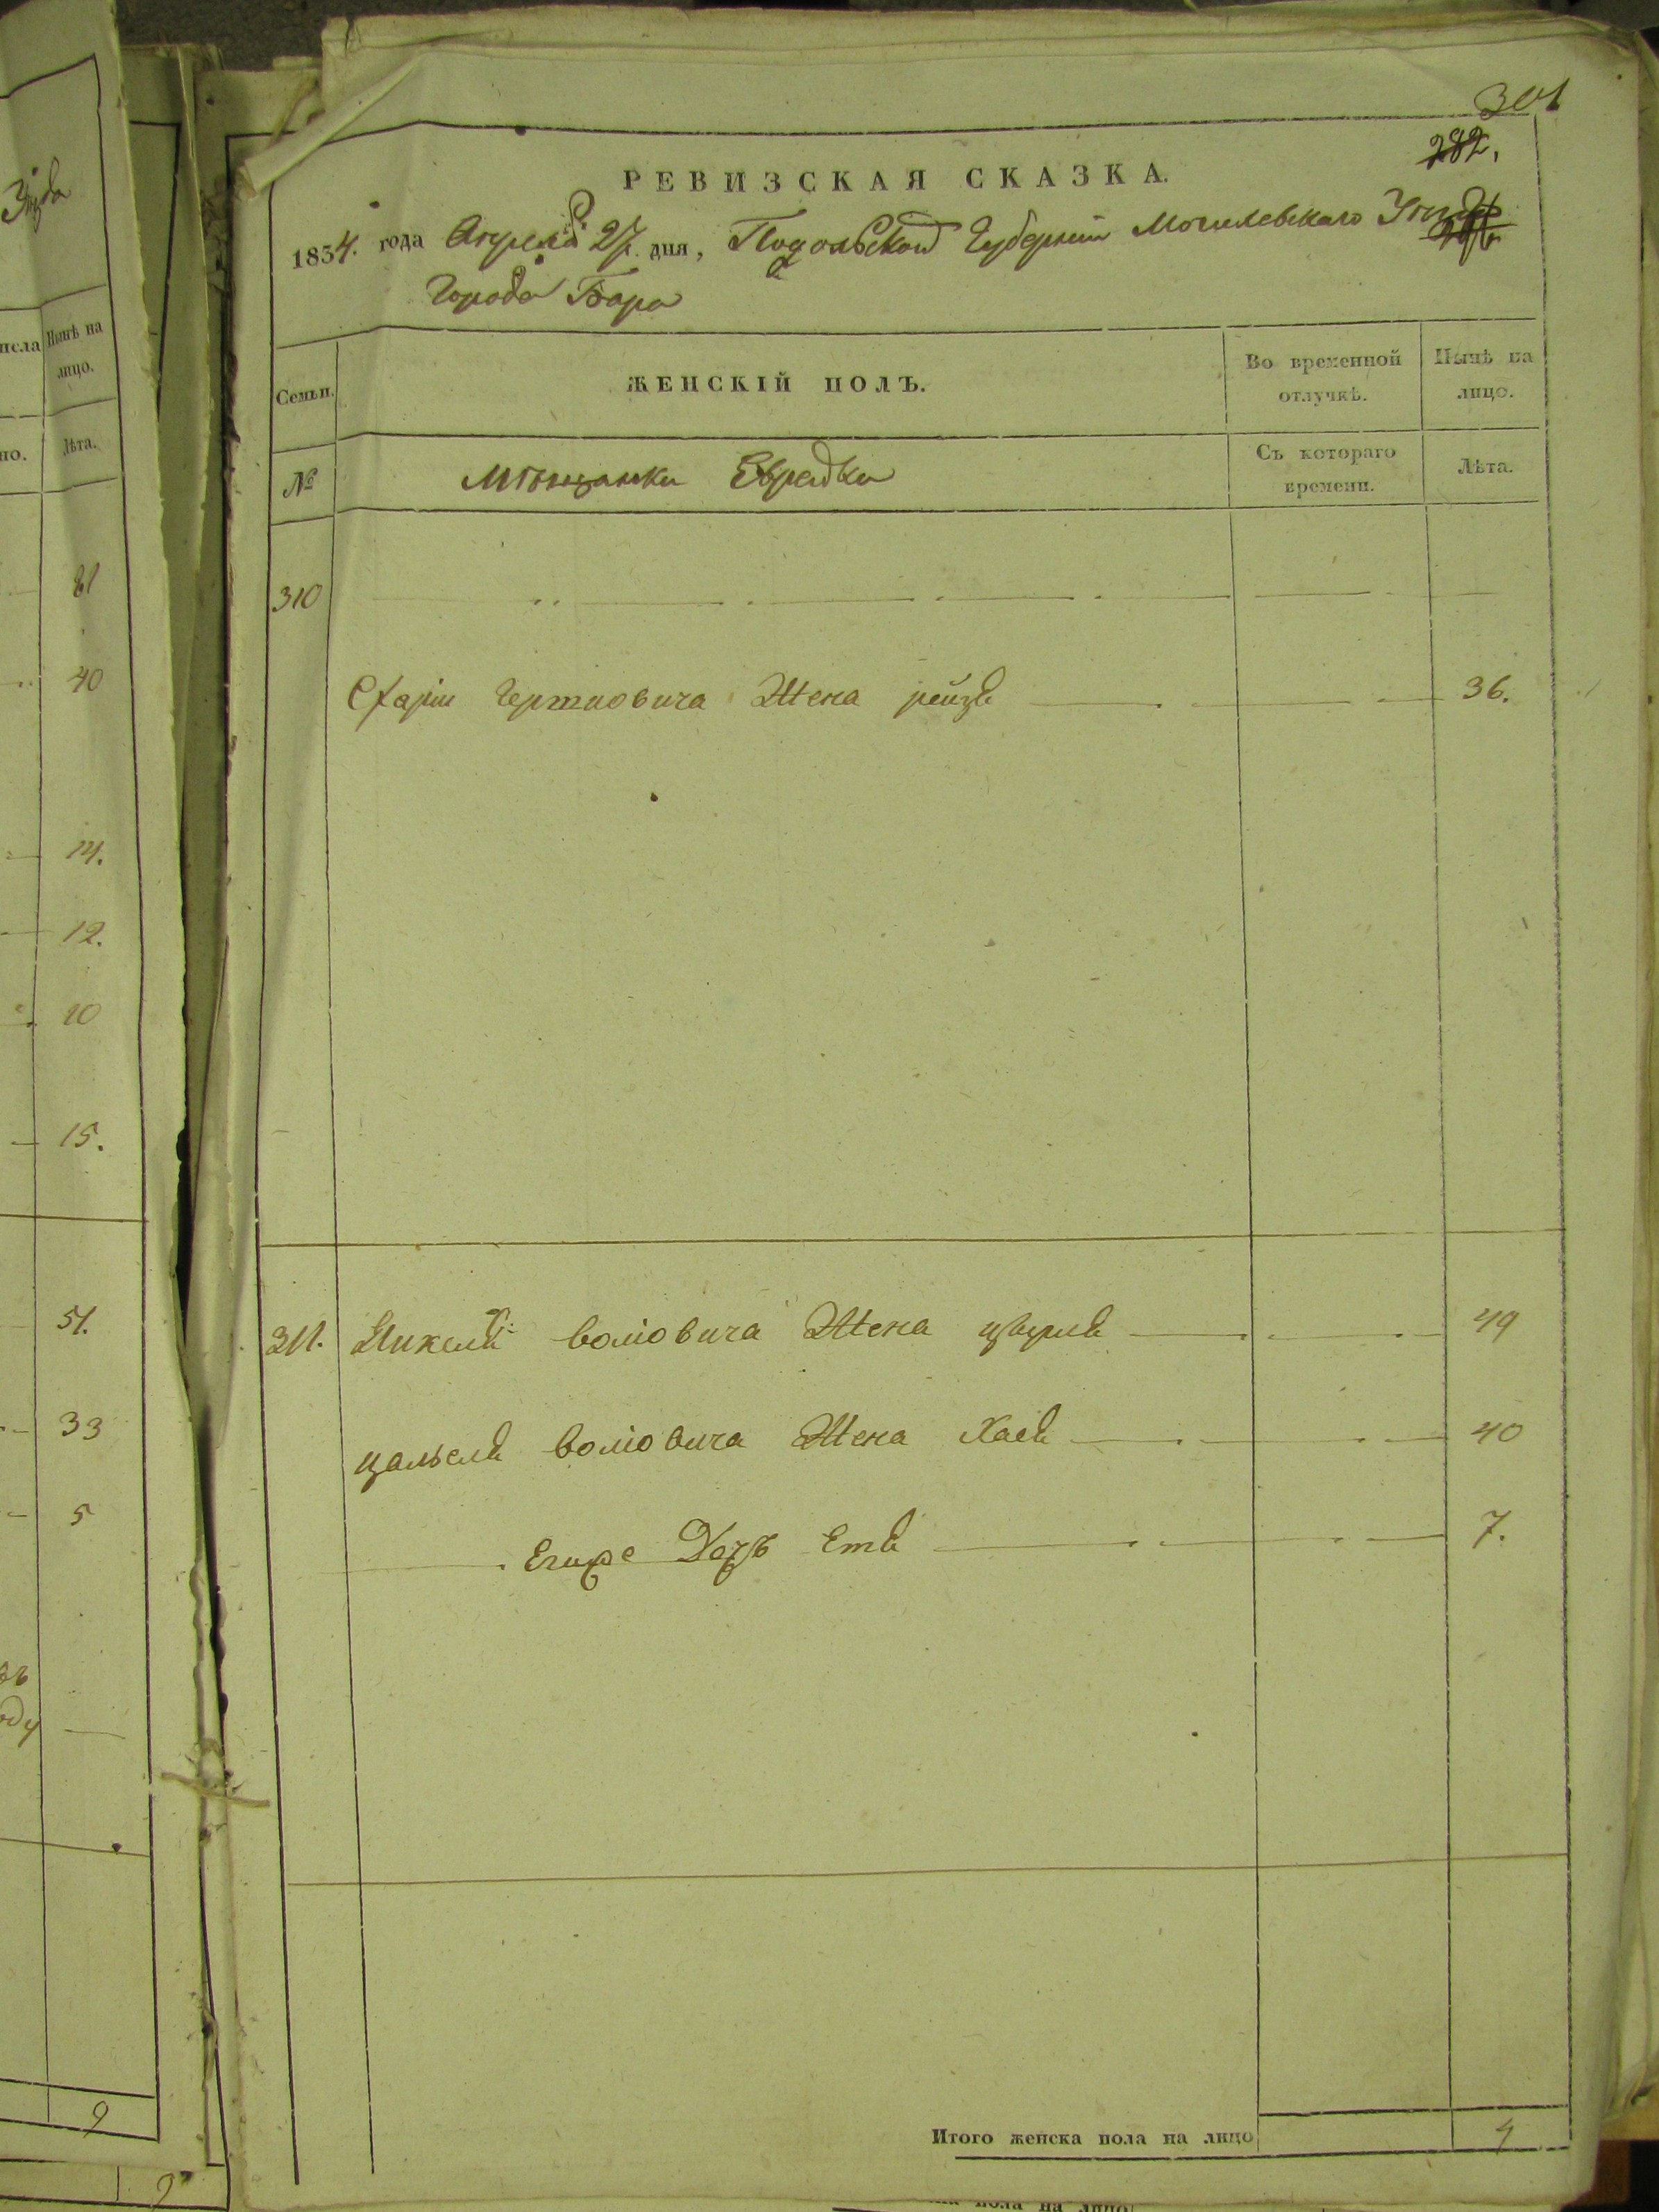 Зѣзда
исла Нынѣ на
лицо.
но. Лѣта.
81
40
14.
12.
10
15.
51.
33
5
оду
9
9
301
282,
РЕВИЗСКАЯ СКАЗКА.
1834. года Апреля 27. дня, Подольской Губерніи Могилевскаго Уезда
Города Бара
Семьи. ЖЕНСКІЙ ПОЛЪ. Во временной отлучкѣ. Нынѣ на лицо.
№ Мѣщанки Еврейки Съ котораго времени. Лѣта.
310
Схаріи Гершковича Жена рейзя 36.
311. воліовича Жена 49
воліовича Жена Хая 40
Егоже Дочь Етя 7.
Итого женска пола на лицо 4
пола на лицо